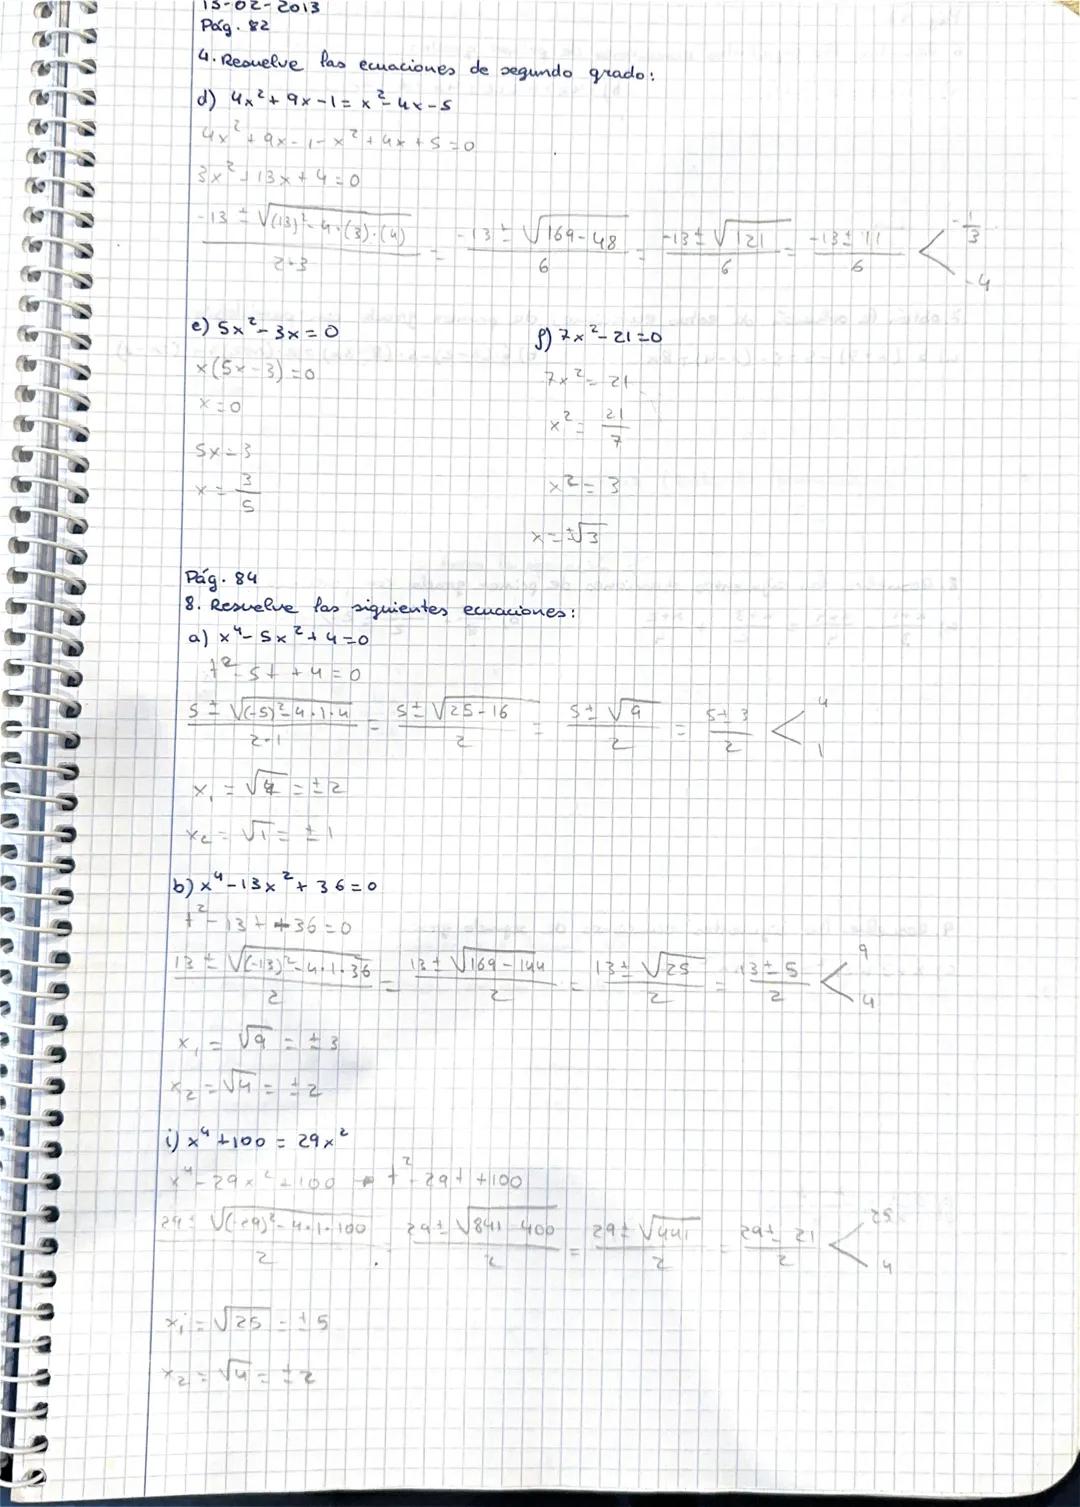 13-02-2013
Pág. 82
4. Resuelve las ecuaciones de segundo grado:
d) 4x² + 9x - 1 = x² - 4x - 5
4x² + 9x - 1 - x² + 4x + 5 = 0
3x² + 13x + 4 = 0
(-13 ± √((13)² - 4·(3)·(4)))/(2·3) = (-13 ± √(169-48))/6 = (-13 ± √121)/6 = (-13 ± 11)/6 < -1/3, -4
e) 5x² - 3x = 0
x(5x - 3) = 0
x = 0
5x = 3
x = 3/5
f) 7x² - 21 = 0
7x² = 21
x² = 21/7
x² = 3
x = ±√3
Pág. 84
8. Resuelve las siguientes ecuaciones:
a) x⁴ - 5x² + 4 = 0
t² - 5t + 4 = 0
(5 ± √((-5)² - 4·1·4))/(2·1) = (5 ± √(25-16))/2 = (5 ± √9)/2 = (5 ± 3)/2 < 4, 1
x₁ = √4 = ±2
x₂ = √1 = ±1
b) x⁴ - 13x² + 36 = 0
t² - 13t + 36 = 0
(13 ± √((-13)² - 4·1·36))/2 = (13 ± √(169-144))/2 = (13 ± √25)/2 = (13 ± 5)/2 < 9, 4
x₁ = √9 = ±3
x₂ = √4 = ±2
i) x⁴ + 100 = 29x²
x⁴ - 29x² + 100 → t² - 29t + 100
(29 ± √((-29)² - 4·1·100))/2 = (29 ± √(841-400))/2 = (29 ± √441)/2 = (29 ± 21)/2 < 25, 4
x₁ = √25 = ±5
x₂ = √4 = ±2